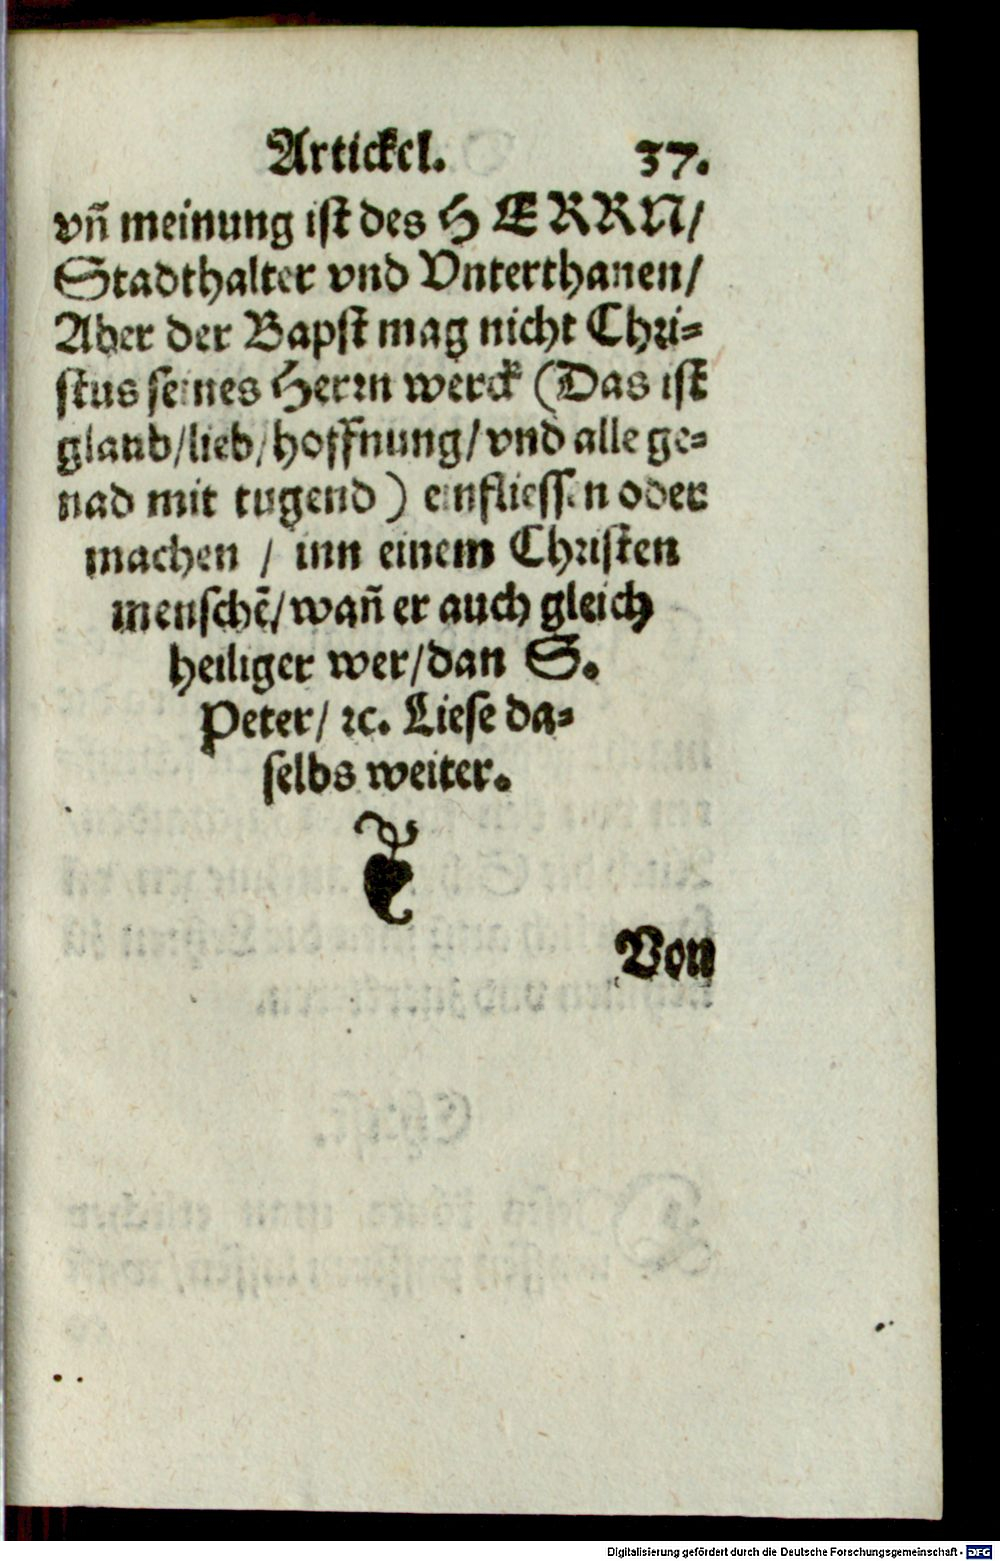 Artickel. 37.
vñ meinung ist des HERRN/
Stadthalter vnd Vnterthanen/
Aber der Bapst mag nicht Chri-
stus seines Herrn werck (Das ist
glaub/lieb/hoffnung/vnd alle ge-
nad mit tugend) einfliessen oder
machen / inn einem Christen
menschẽ/wañ er auch gleich
heiliger wer/dan S.
Peter/ ꝛc. Liese da-
selbs weiter.
Von
Digitalisierung gefördert durch die Deutsche Forschungsgemeinschaft - DFG